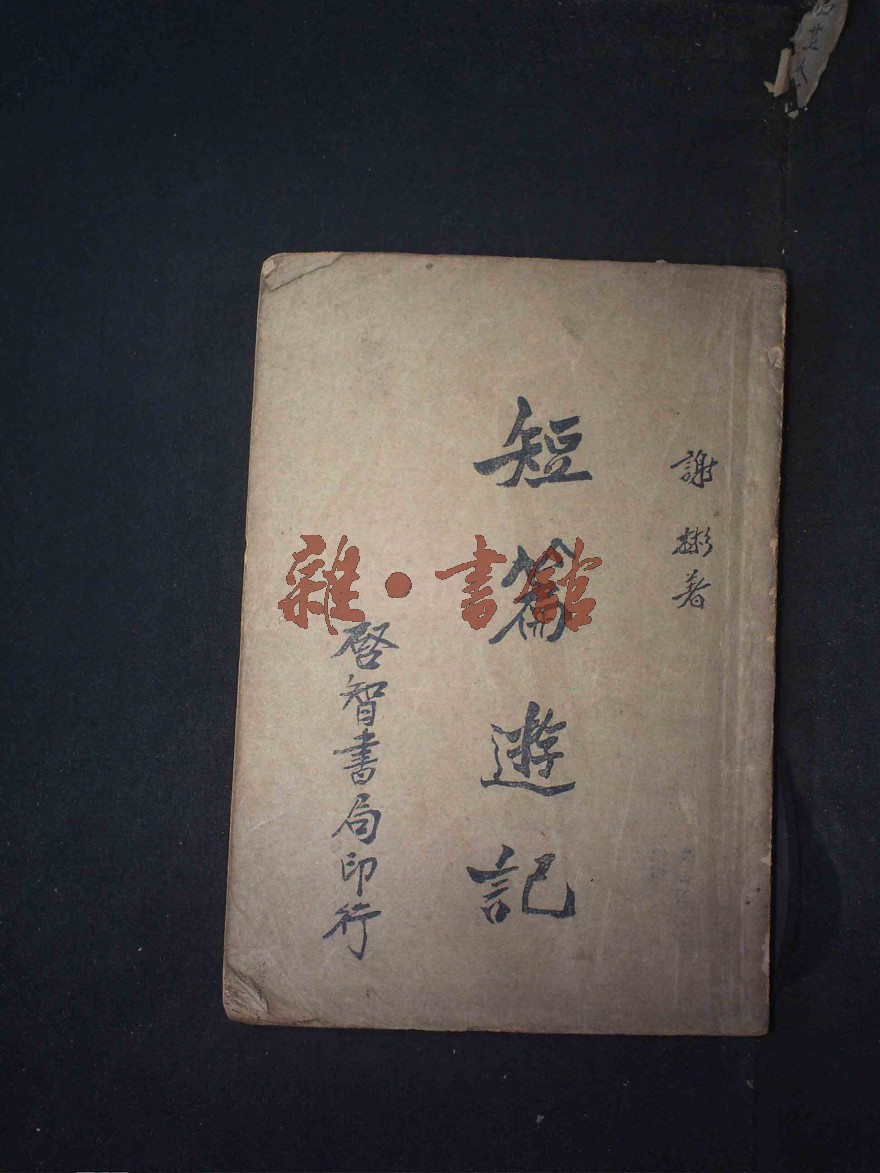 謝彬著
短篇遊記
啓智書局印行
雜·書館